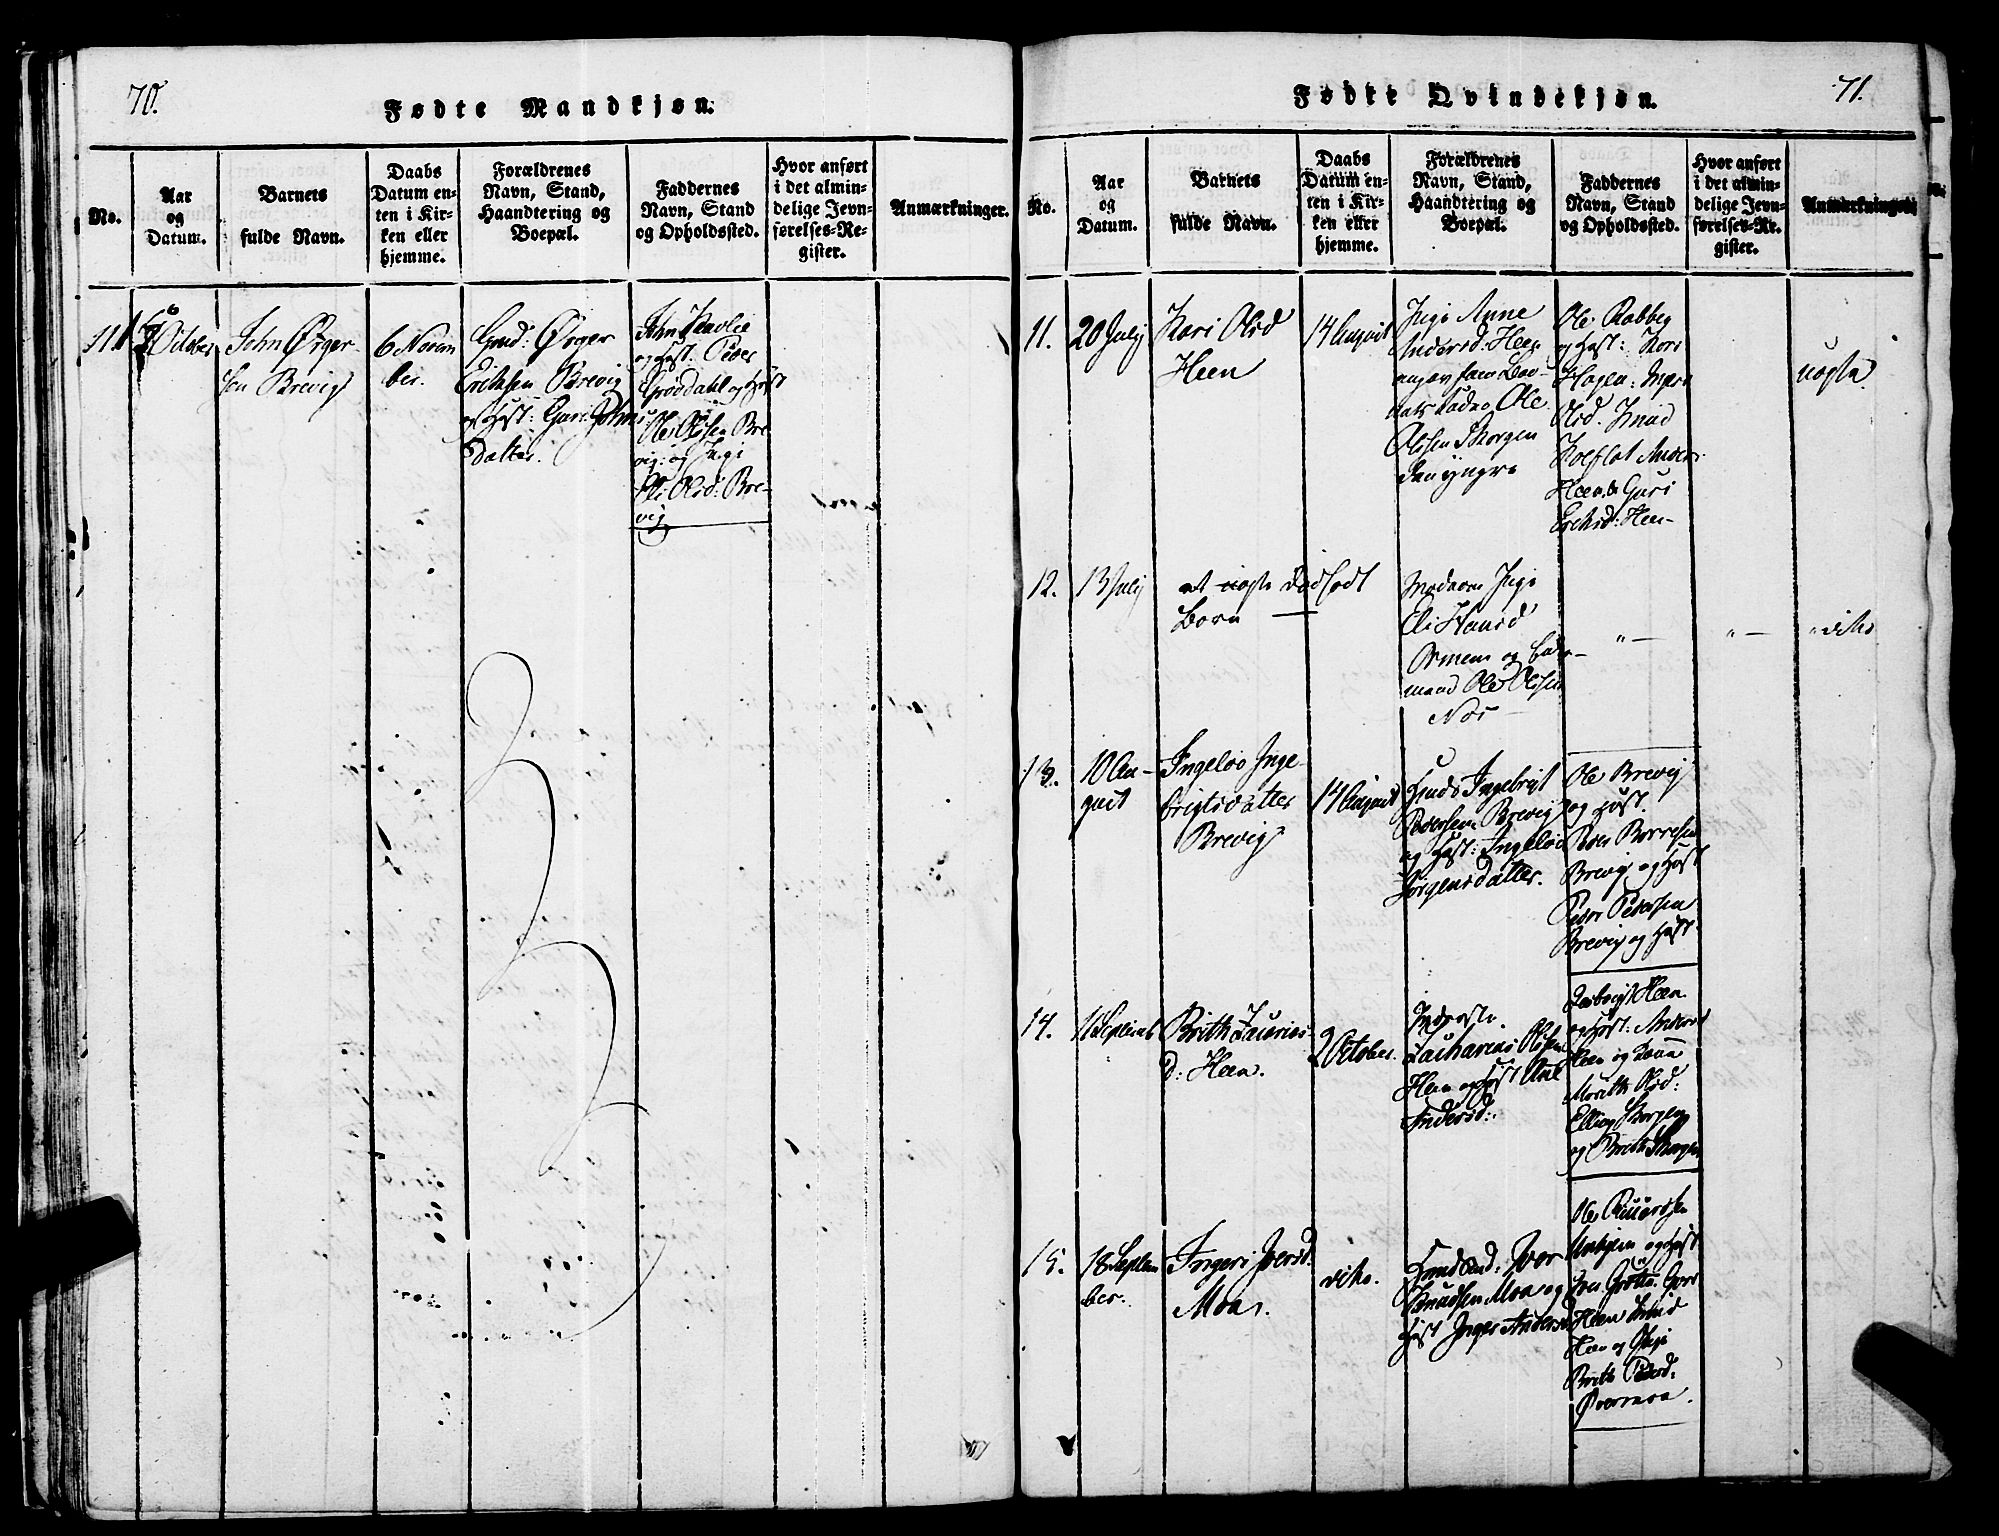 70.
Fødte Mandkjøn.
No.
Aar
og
Datum.
Barnets
fulde Navn.
Daabs
Datum en-
ten i Kir-
ken eller
hjemme.
Forældrenes
Navn, Stand,
Haandtering og
Boepæl.
Faddernes
Navn, Stand
og Opholdssted.
Hvor anført
i det almin-
delige Jevn-
førelses-Re-
gister.
Anmærkninger.
October
John Ørger-
sen Brevig
6 Novem
ber.
Ørger
Ericksen Brevig
og Hust: Guri John
datter.
John
og Hust: Peder
Grøvdahl og Hust
Ole Olsen Bre
vig: og Pige
Olsd: Bre-
vig
71.
Fødte Qvindekjøn.
No.
Aar
og
Datum.
Barnets
fulde Navn.
Daabs
Datum en-
ten i Kir-
ken eller
hjemme.
Forældrenes
Navn, Stand,
Haandtering og
Boepæl.
Faddernes
Navn, Stand
og Opholdssted.
Hvor anført
i det almin-
delige Jevn-
førelses-Re-
gister.
Anmærkninger.
11.
20 July
Kari Olsd
Heen
14 August
Pige Anne
Andersd: Heen
angav som Bar-
nets Fader Ole
Olssen Skorgen
den yngre
Ole Rabbe
og Hust: Kari
Hagen: Mari
Olsd. Knud
Koflot Anders
Heen & Guri
Ericksd: Heen
uægte
12.
13 July
et uægte dødfødt
Barn
Moderen Pige
Eli Hansd
Ormem og
mand Ole Olsen
Næs
" —
" —
" dito
13.
10 Au-
gust
Ingelov Inge-
brigtsdatter
Brevig
14 August
Ingebrigt
Pedersen Brevig
og Hust: Ingelov
Jørgensdatter.
Ole Brevig
og Hust.
Peder Børresen
Brevig og Hust
Peder Pedersen
Brevig og Hust
14.
11 Septemb
Brith Zacrias-
d: Heen.
2 October.
Inderste
Zacharias Olsen
Heen og Hust Ane
Andersd:
Heen
og Hust: Anders
Heen og Kone
Marith Olsd:
Elling Skorgen
og Brith Skorgen
15.
18 Septem
ber.
Ingeri Iversd:
Moa.
dito.
Iver
Knudsen Moa og
Hust Inger Andersd
Ole
og Hust
Heen Knud
Heen og Pige
Brith Pedersd:
Øvermoa.